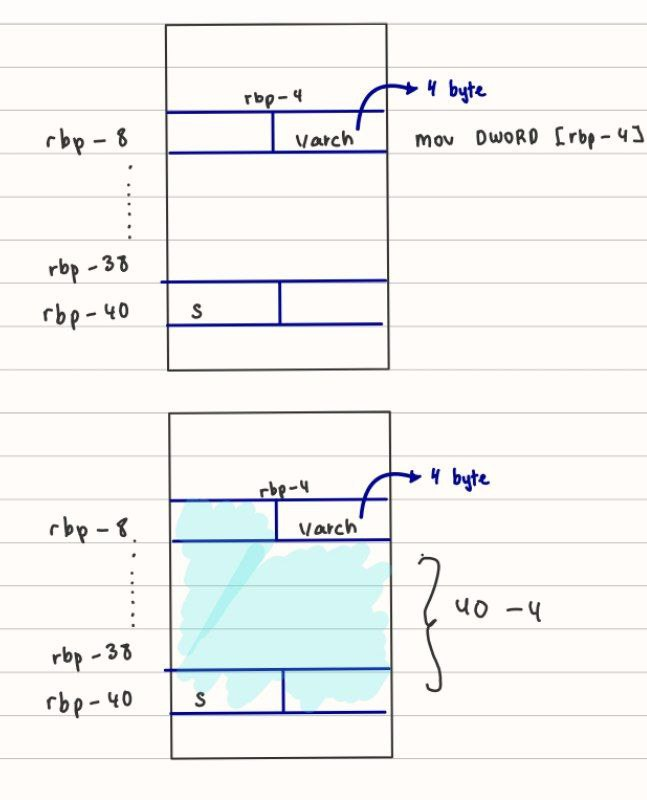 rbp-4
4 byte
rbp - 8
varch
mov DWORD [rbp-4]
rbp -38
rbp-40
s
rbp-4
4 byte
rbp - 8
varch
40 -4
rbp -38
rbp-40
s